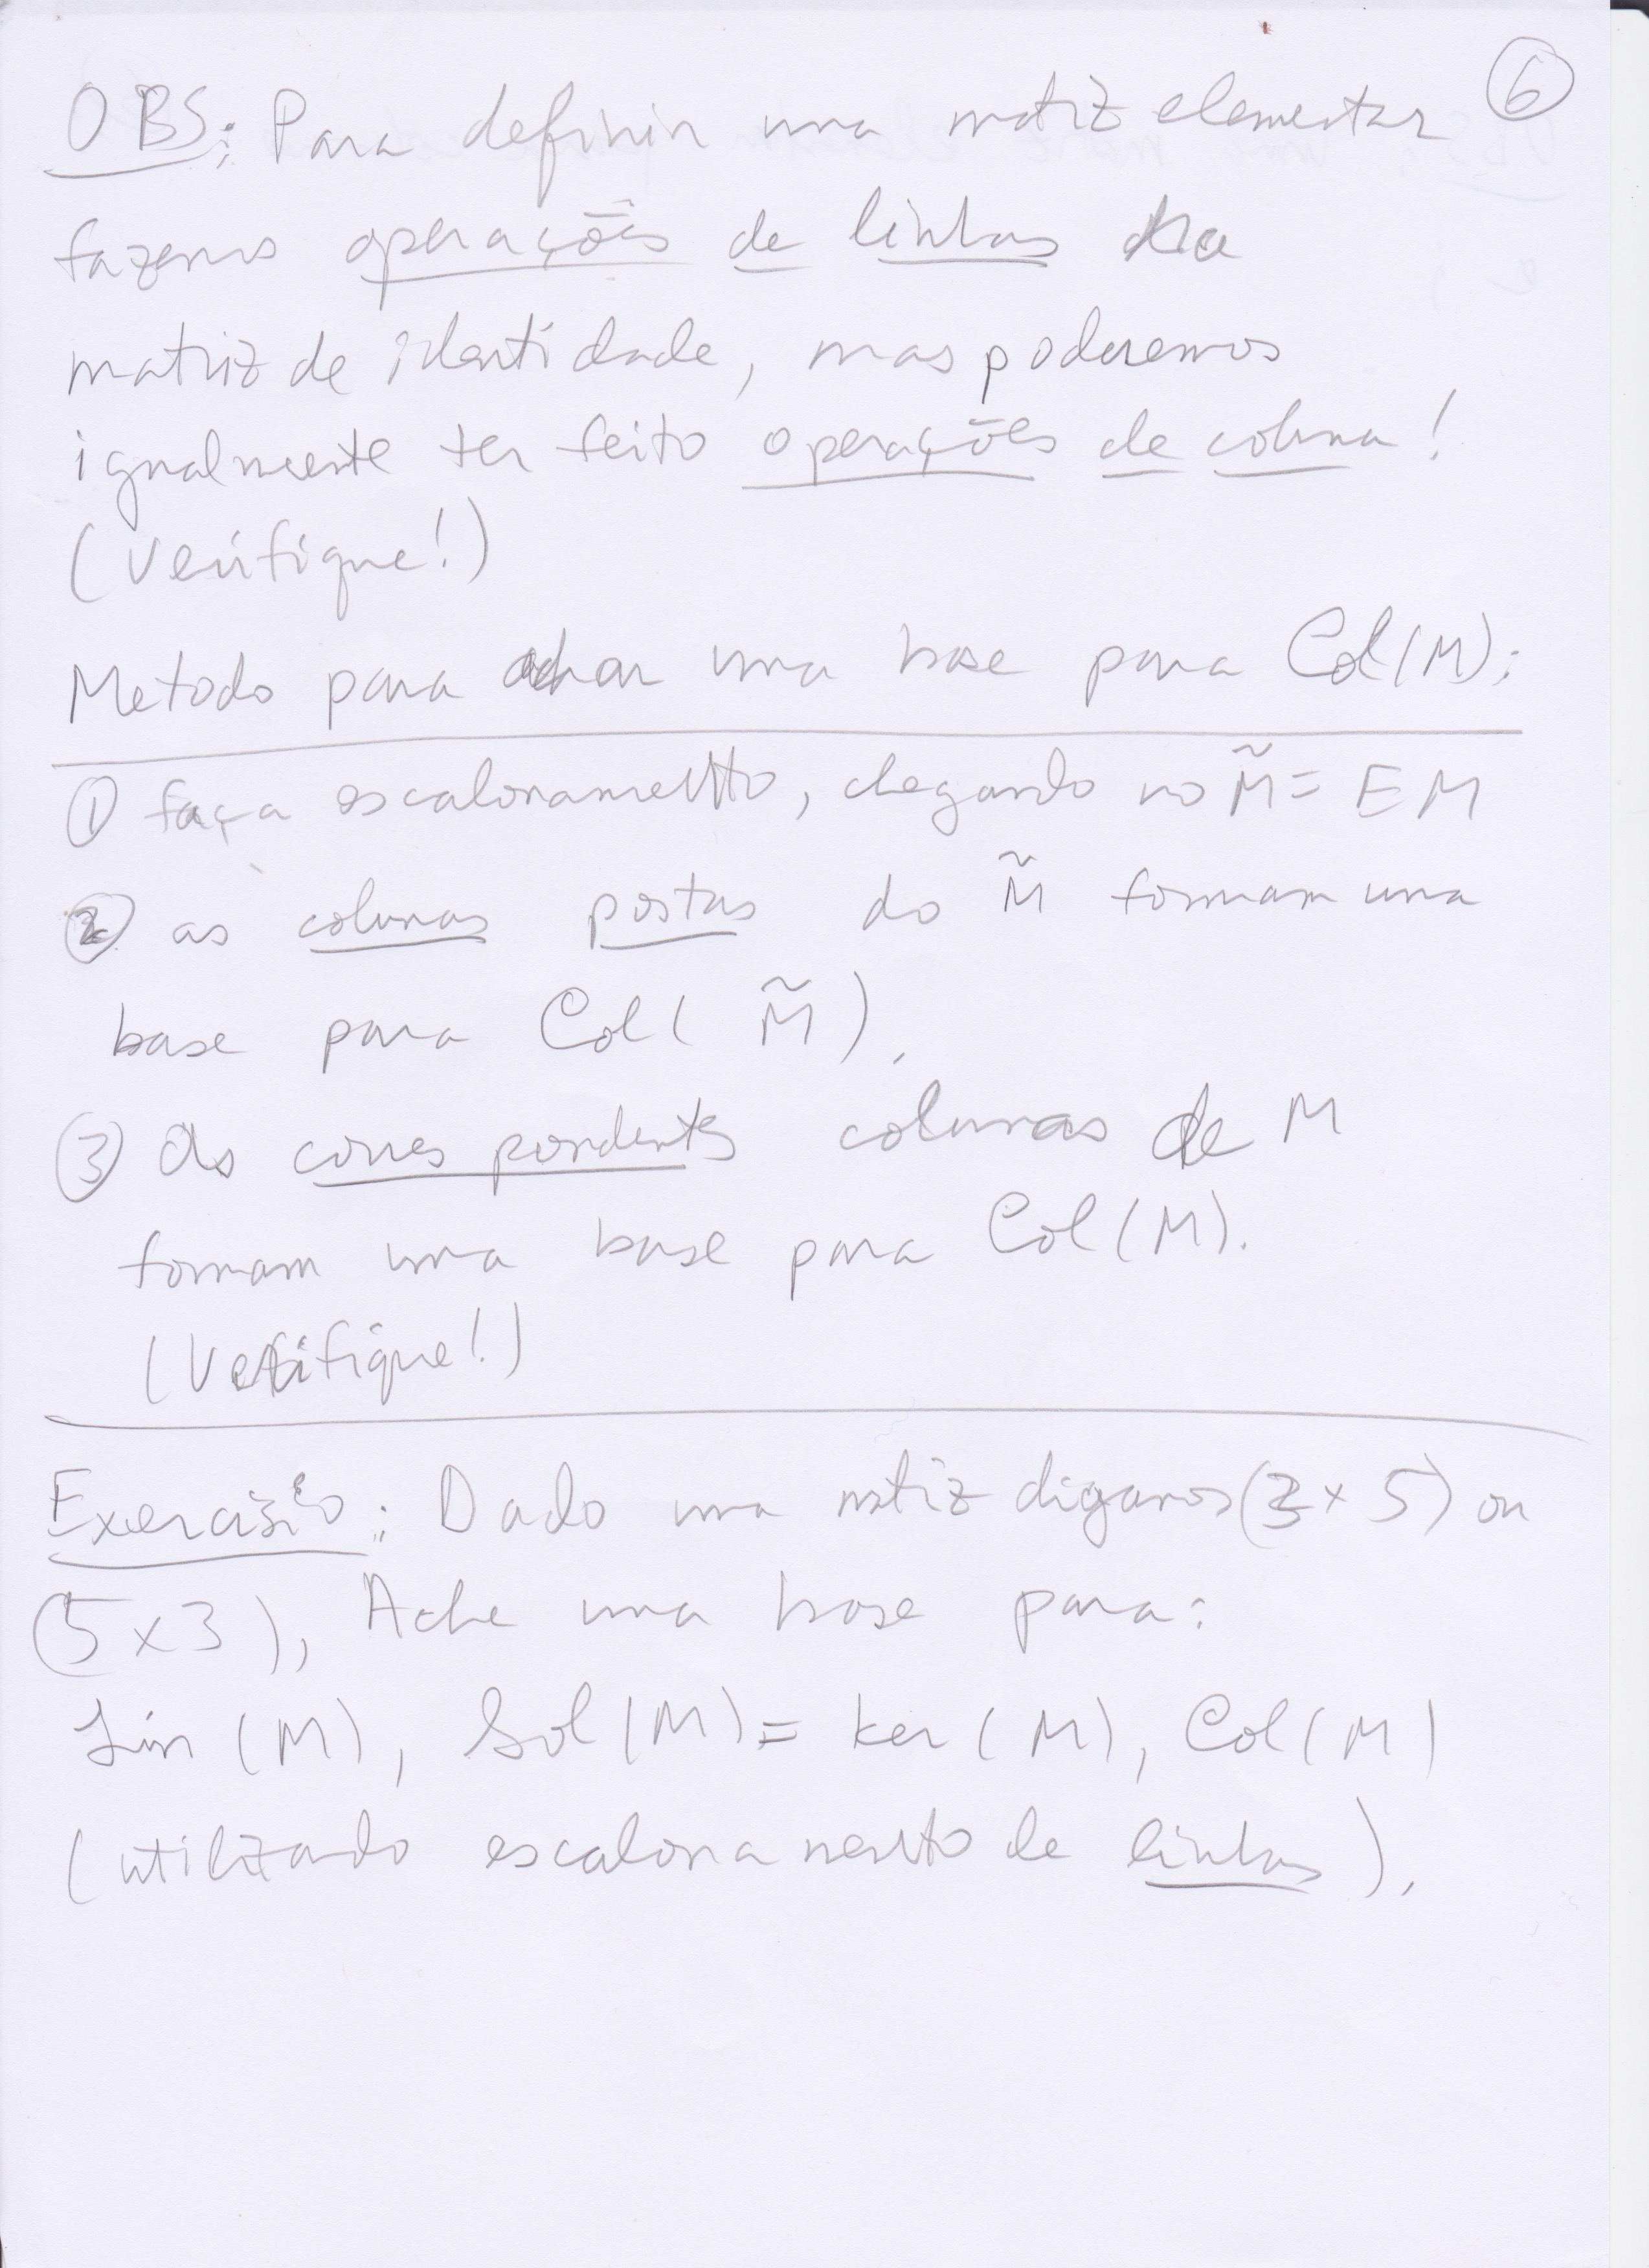 6
OBS: Para definir uma matriz elementar
fazemos operações de linhas na
matriz de identidade, mas poderemos
igualmente ter feito operações de coluna!
(Verifique!)
Metodo para achar uma base para Col(M):
① faça escalonamento, chegando no M̃ = EM
② as colunas postas do M̃ formam uma
base para Col(M̃).
③ As correspondentes colunas de M
formam uma base para Col(M).
(Verifique!)
Exercisio: Dado uma matriz digamos (3x5) ou
(5x3), Ache uma base para:
Lin(M), Sol(M) = ker(M), Col(M)
(utilizando escalonamento de linhas).